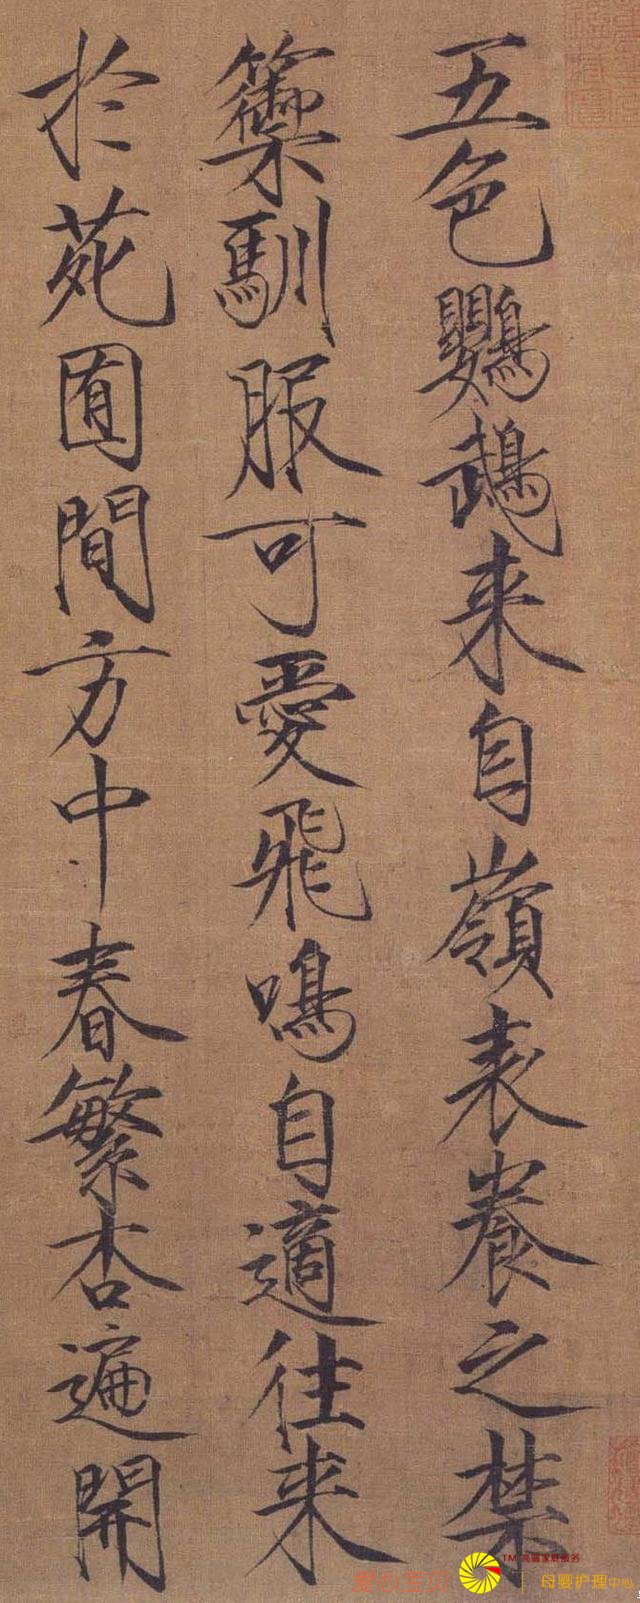 五色鸚鵡来自嶺表養之禁
籞馴服可愛飛鳴自適往来
於苑囿間方中春繁杏遍開
TM 高端家庭服务
爱心宝贝 母婴护理中心